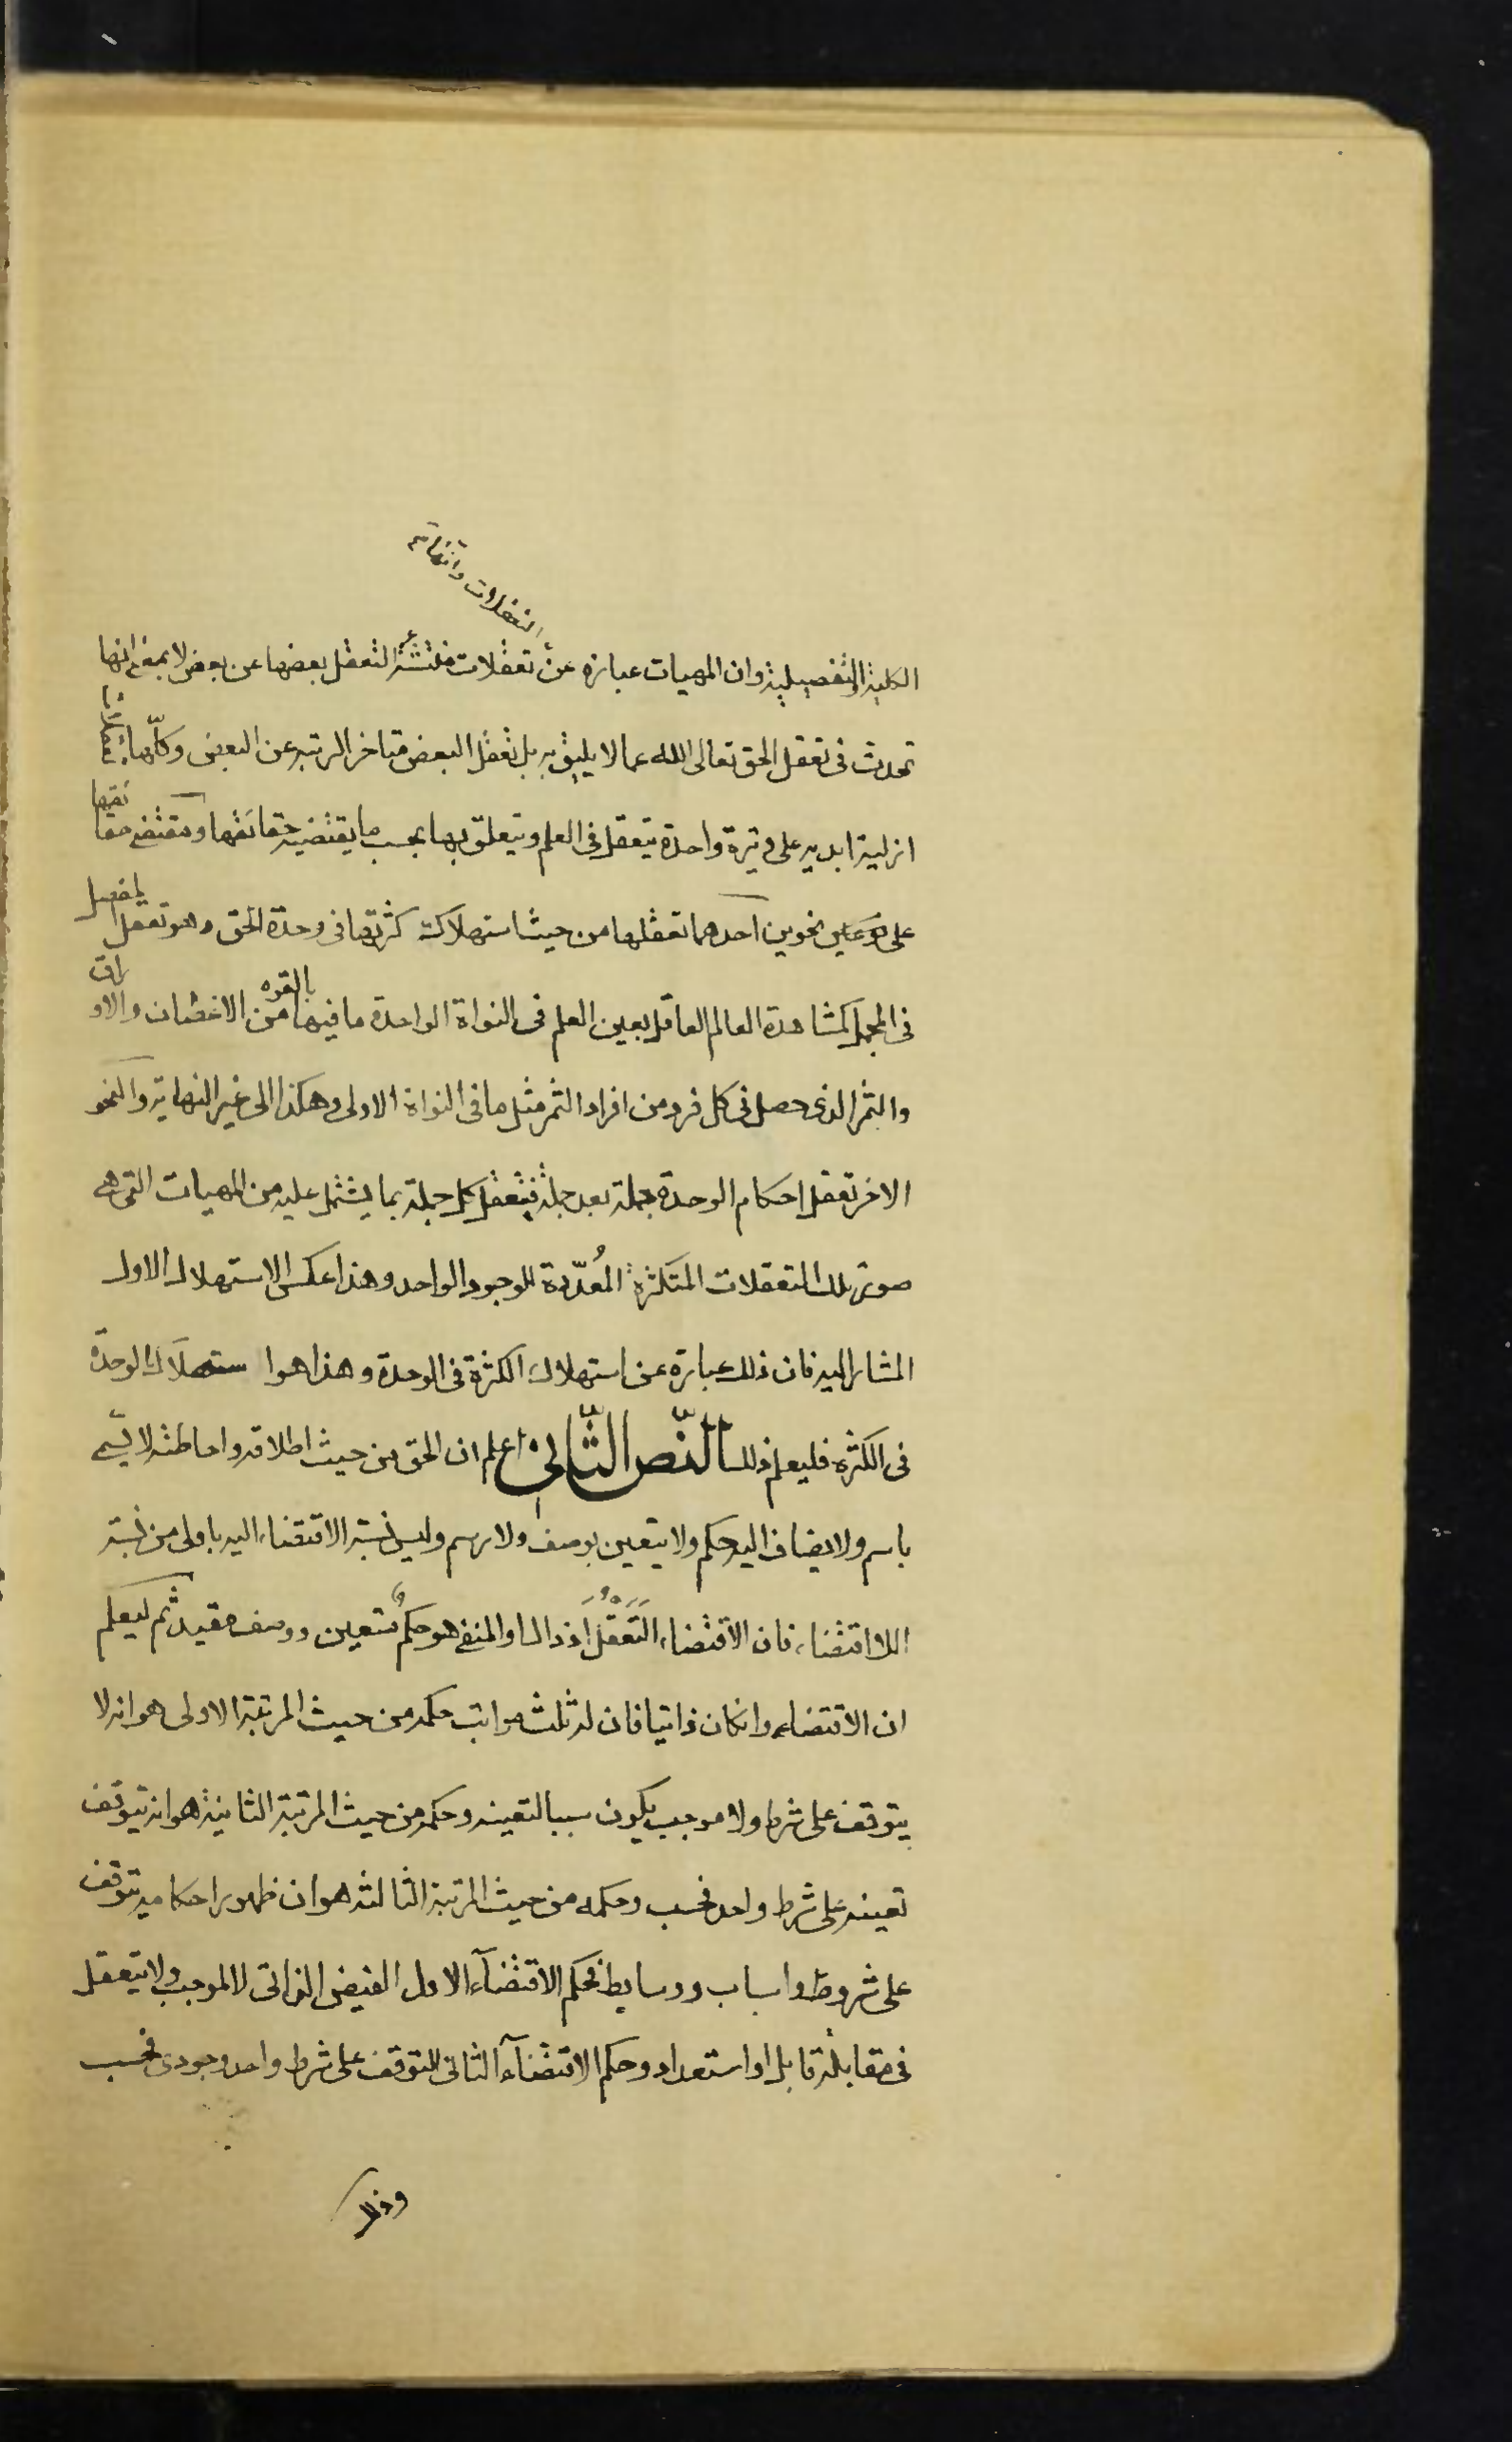 التعقلات وانتشاته
الكلية التفصيلية وان المهيات عبارة عن تعقلات منتشئة التعقل بعضها عن بعض لا بمعنى انها
تحدث فى تعقل الحق تعالى الله عما لا يليق به بل تعقل البعض متاخر الرتبة عن البعض وكلّها
ازلية ابدية على وتيرة واحدة يتعقل فى العلم ويتعلق بها بحسب ما يقتضيه حقائقها ومقتضى حقائقها
على نحوين احدهما تعقلها من حيث استهلاك كثرتها فى وحدة الحق وهو تعقل المفصل
فى المجمل كمشاهدة العالم العاقل بعين العلم فى النواة الواحدة ما فيها بالقوة من الاغصان والاوراق
والثمر الذى حصل فى كل فرد من افراد الثمر مثل ما فى النواة الاولى وهكذا الى غير النهاية والنحو
الاخر تعقل احكام الوحدة جملة بعد جملة فيتعقل كل جملة بما يشتمل عليه من المهيات التى هى
صورة تلك التعقلات المتكثرة المُعدّدة للوجود الواحد وهذا عكس الاستهلاك الاول
المشار اليه فان ذلك عبارة عن استهلاك الكثرة فى الوحدة وهذا هو استهلاك الوحدة
فى الكثرة فليعلم ذلك النّص الثّانى اعلم ان الحق من حيث اطلاقه واحاطته لا يسمّى
باسم ولا يضاف اليه حكم ولا يتعين بوصف ولا رسم وليس نسبة الاقتضاء اليه باولى من نسبة
اللااقتضاء فان الاقتضاء التعقل اذ ذاك او المنفى هو حكم متعين ووصف مقيد ثم ليعلم
ان الاقتضاء وانكان ذاتيا فان له ثلث مراتب حكمه من حيث المرتبة الاولى هو انه لا
يتوقف على شرط ولا موجب يكون سببا لتعينه وحكمه من حيث المرتبة الثانية هو انه يتوقف
تعينه على شرط واحد فحسب وحكمه من حيث المرتبة الثالثة هو ان ظهور احكامه يتوقف
على شروط واسباب ووسايط فحكم الاقتضآء الاول الفيض الذاتى لا لموجب ولا يتعقل
فى مقابلة قابل او استعداد وحكم الاقتضآء الثانى التوقف على شرط واحد وجودى فحسب
وذلك